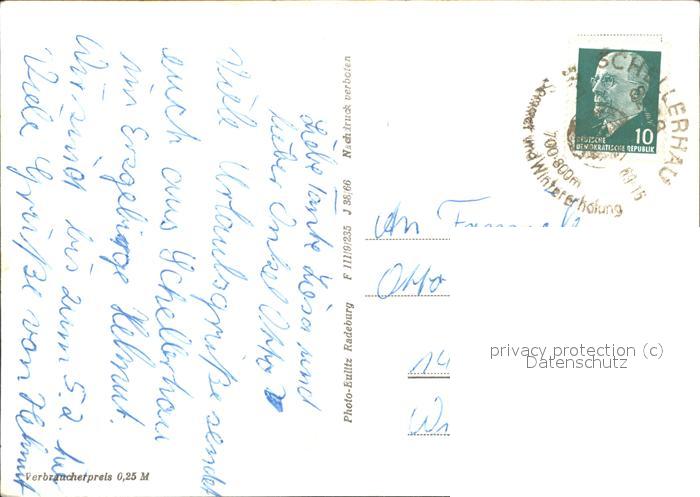 Liebe Tante Lösa und
lieber Onkel Otto
Viele Urlaubsgrüße sendet
euch aus Schellerhau
im Erzgebirge Helmut.
Wir sind bis zum 5.2. hier
Viele Grüße von Helmut
Verbraucherpreis 0,25 M
Photo-Eulitz Radeburg F 111/9/235 J 38/66 Nachdruck verboten
SCHELLERHAU
Sommer und Wintererholung
700-800m
10
DEUTSCHE
DEMOKRATISCHE REPUBLIK
An
Otto
14
privacy protection (c)
Datenschutz